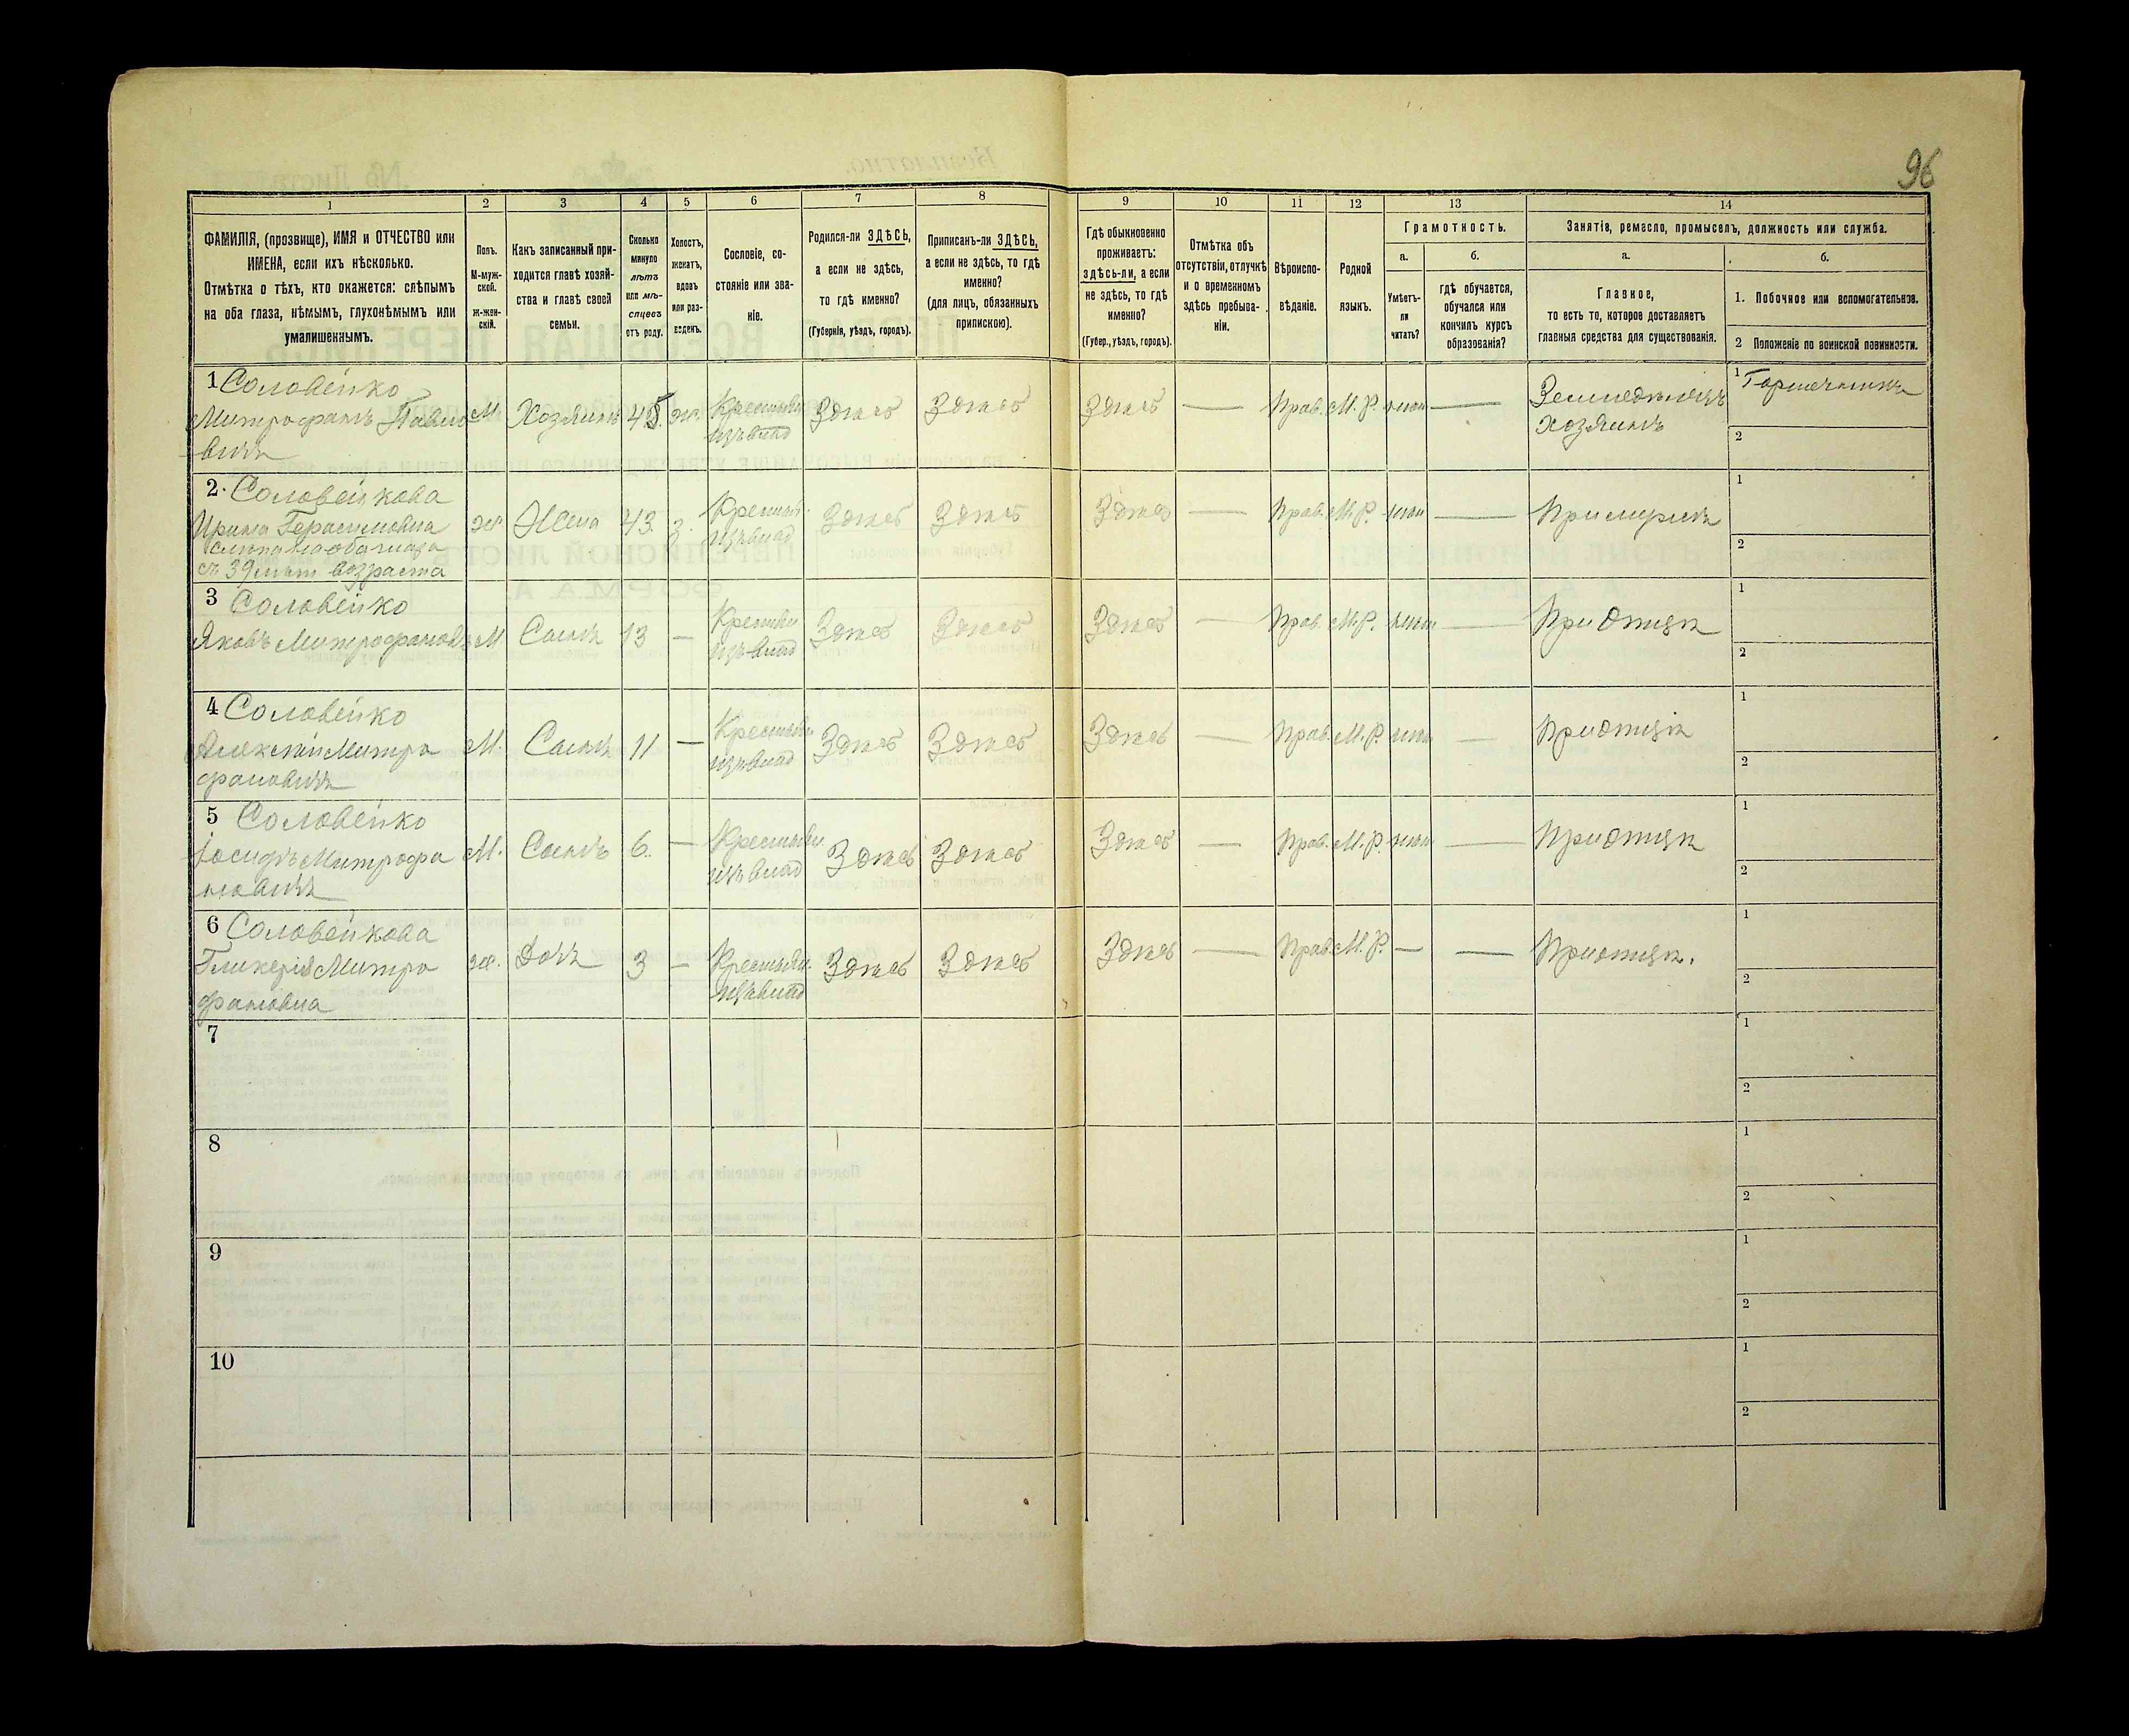 96
1 2 3 4 5 6 7 8 9 10 11 12 13 14
ФАМИЛІЯ, (прозвище), ИМЯ и ОТЧЕСТВО или
ИМЕНА, если ихъ нѣсколько.
Отмѣтка о тѣхъ, кто окажется: слѣпымъ
на оба глаза, нѣмымъ, глухонѣмымъ или
умалишеннымъ.
Полъ.
М-муж-
ской.
ж-жен-
скій.
Какъ записанный при-
ходится главѣ хозяй-
ства и главѣ своей
семьи.
Сколько
минуло
лѣтъ
или мѣ-
сяцевъ
отъ роду.
Холостъ,
женатъ,
вдовъ
или раз-
веденъ.
Сословіе, со-
стояніе или зва-
ніе.
Родился-ли ЗДѢСЬ,
а если не здѣсь,
то гдѣ именно?
(Губернія, уѣздъ, городъ).
Приписанъ-ли ЗДѢСЬ,
а если не здѣсь, то гдѣ
именно?
(для лицъ, обязанныхъ
припискою).
Гдѣ обыкновенно
проживаетъ:
здѣсь-ли, а если
не здѣсь, то гдѣ
именно?
(Губер., уѣздъ, городъ).
Отмѣтка объ
отсутствіи, отлучкѣ
и о временномъ
здѣсь пребыва-
ніи.
Вѣроиспо-
вѣданіе.
Родной
языкъ.
Грамотность.
а.
Умѣетъ-
ли
читать?
б.
гдѣ обучается,
обучался или
кончилъ курсъ
образованія?
Занятіе, ремесло, промыселъ, должность или служба.
а.
Главное,
то есть то, которое доставляетъ
главныя средства для существованія.
б.
1. Побочное или вспомогательное.
2 Положеніе по воинской повинности.
1 Соловейко
Митрофанъ Павло
вичъ
М Хозяинъ 45. Ж. Крестьян
изъ влад
Здѣсь Здѣсь Здѣсь — Прав. М. Р. нѣт —
Земледѣлецъ
Хозяинъ
1
2
2. Соловейкова
Ирина Герасимовна
слѣпа на оба глаза
съ 39 лѣт возраста
ж Жена 43 З. Крестьян
изъ влад
Здѣсь Здѣсь Здѣсь — Прав. М. Р. нѣт — При мужѣ
1
2
3 Соловейко
Яковъ Митрофановъ
М Сынъ 13 — Крестьян
изъ влад
Здѣсь Здѣсь Здѣсь — Прав. М. Р. нѣт — При отцѣ
1
2
4 Соловейко
Алексѣй Митро
фановичъ
М. Сынъ 11 — Крестьян
изъ влад
Здѣсь Здѣсь Здѣсь — Прав. М. Р. нѣт — При отцѣ
1
2
5 Соловейко
Іосифъ Митрофа
новичъ
М. Сынъ 6. — Крестьян.
изъ влад
Здѣсь Здѣсь Здѣсь — Прав. М. Р. нѣт — При отцѣ
1
2
6 Соловейкова
Гликерія Митро
фановна
ж. Дочь 3 — Крестьян.
изъ влад
Здѣсь Здѣсь Здѣсь — Прав. М. Р. — — При отцѣ.
1
2
7
1
2
8
1
2
9
1
2
10
1
2